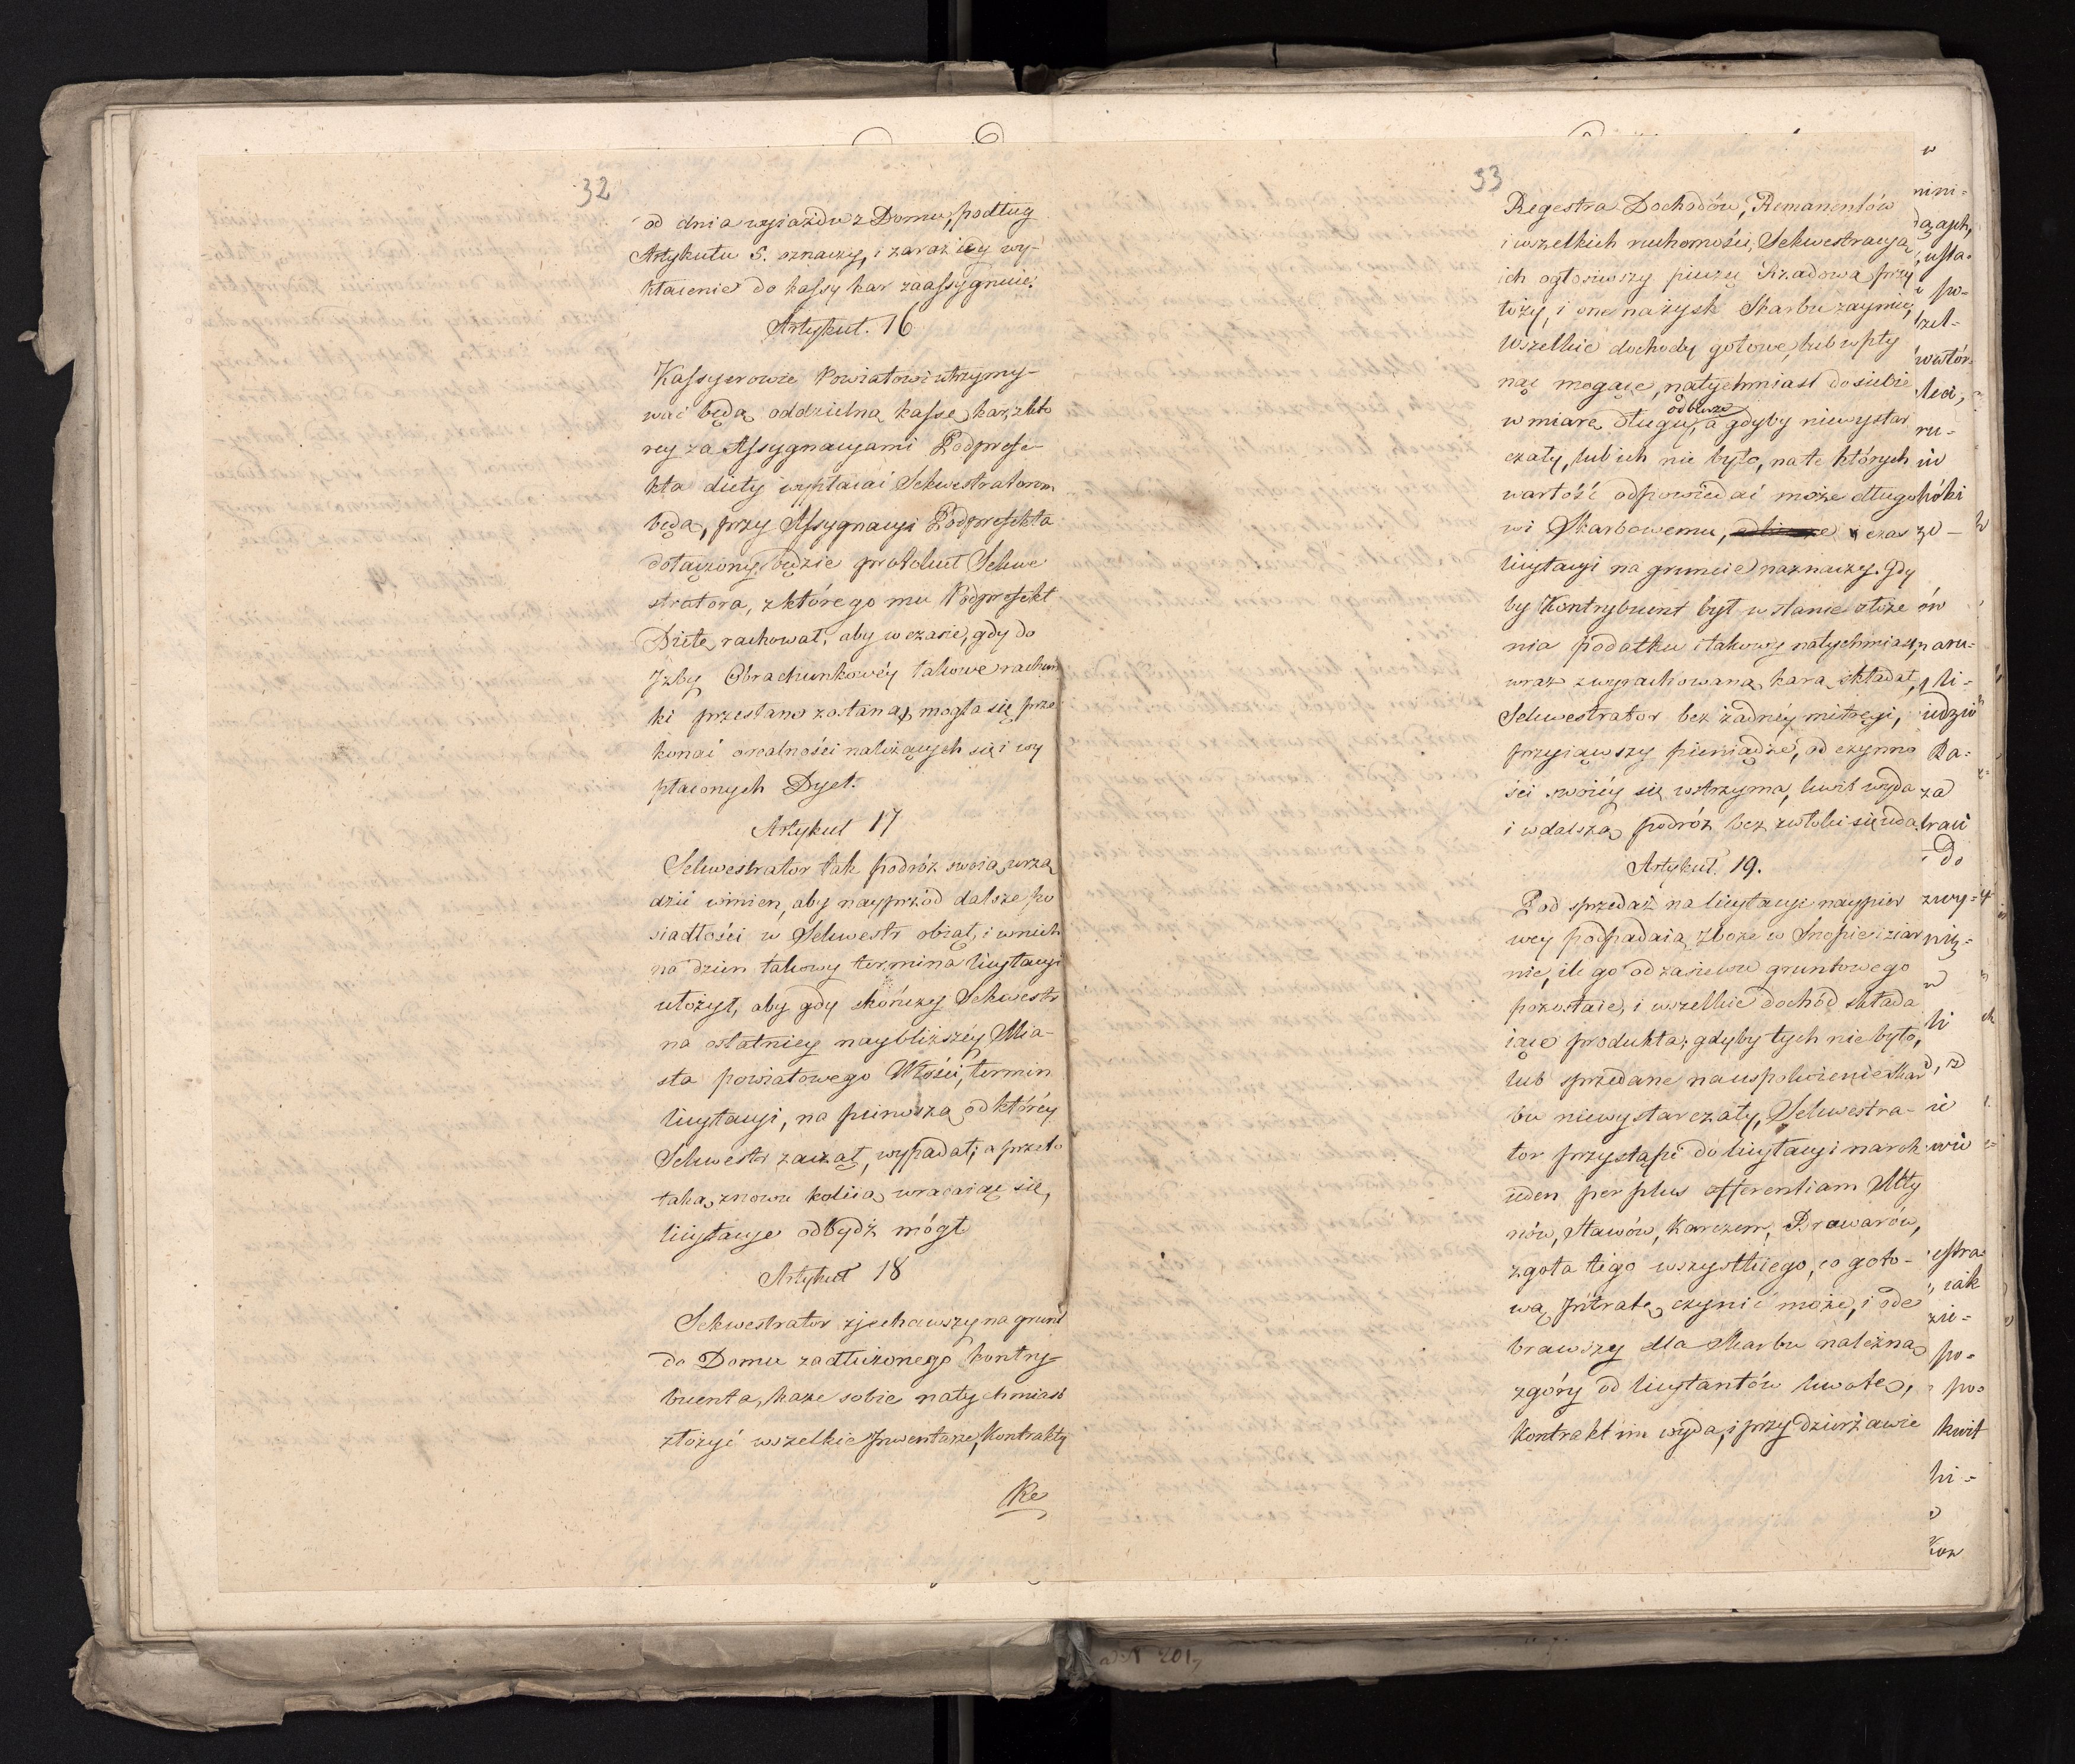 32
od dnia wyiazdu z Domu, podług
Artykułu 5. oznaczy, i zaraz iey wy-
płacenie do kassy kar zaassygnuie.
Artykuł. 16
Kassyerowie Powiatowi utrzymy-
wać będą oddzielną kassę kar, z któ
rey za Assygnacyami Podprefe-
kta diety wypłacać Sekwestratorom
będą, przy Assygnacyi Podprefekta
dołączony będzie protokuł Sekwe
stratora, z którego mu Podprefekt
Dietę rachował, aby w czasie, gdy do
Izby Obrachunkowéy takowe rachun
ki przesłane zostaną, mogła się prze
konać o realności należących się i wy
płaconych Dyet.
Artykuł 17
Sekwestrator tak podróż swoią urzą
dzić winien, aby nayprzód dalsze po
siadłości w Sekwestr obiął, i w nich
na dzien takowy termina licytacyi
ułożył, aby gdy skończy Sekwestr
na ostatniey naybliższéy Mia-
sta powiatowego Włości, termin
licytacyi, na pierwszą od któréy
Sekwestr zaczął, wypadał; a przeto
taką znowu koleią wracaiąc się,
licytacye odbydź mógł.
Artykuł 18
Sekwestrator zjechawszy na grunt
do Domu zadłużonego kontry-
buenta, każe sobie natychmiast
złożyć wszelkie Inwentarze, Kontrakty
Re
33
Regestra Dochodów, Remanentów
i wszelkich ruchomości, Sekwestracyą
ich ogłosiwszy pieczę Rządową przy
łoży, i one na zysk Skarbu zaymie;
wszelkie dochody gotowe, lub wpły
nąć mogące, natychmiast do siebie
odbierze
w miarę długu, a gdyby niewystar
czały, lub ich nie było, na te których
wartość odpowiedać może długo
wi Skarbowemu, czas
licytacyi na gruncie naznaczy. Gdy
by Kontrybuent był w stanie złoże
nia podatku i takowy natychmiast
wraz z wyrachowaną karą składał,
Sekwestrator bez żadnéy mitręgi,
przyiąwszy pieniądze, od czynno
ści swoiéy się wstrzyma, kwit wyda
i w dalszą podróż bez zwłoki się uda.
Artykuł. 19.
Pod sprzedaż na licytacyi naypier
wey podpadaią zboże w Snopie i ziar
nie, ile go od zasiewu gruntowego
pozostaie, i wszelkie dochód składa
iące produkta; gdyby tych nie było,
lub sprzedane na uspokoienie Skar
bu niewystarczały, Sekwestra-
tor przystąpi do licytacyi na rok
ieden per plus offerentiam Mły
nów, Stawów, Karczem, Browarów,
zgoła tego wszystkiego, co goto-
wą Intratę czynić może, i ode
brawszy dla Skarbu należną
z góry od licytantów kwotę,
Kontrakt im wyda, i przy dzierżawie